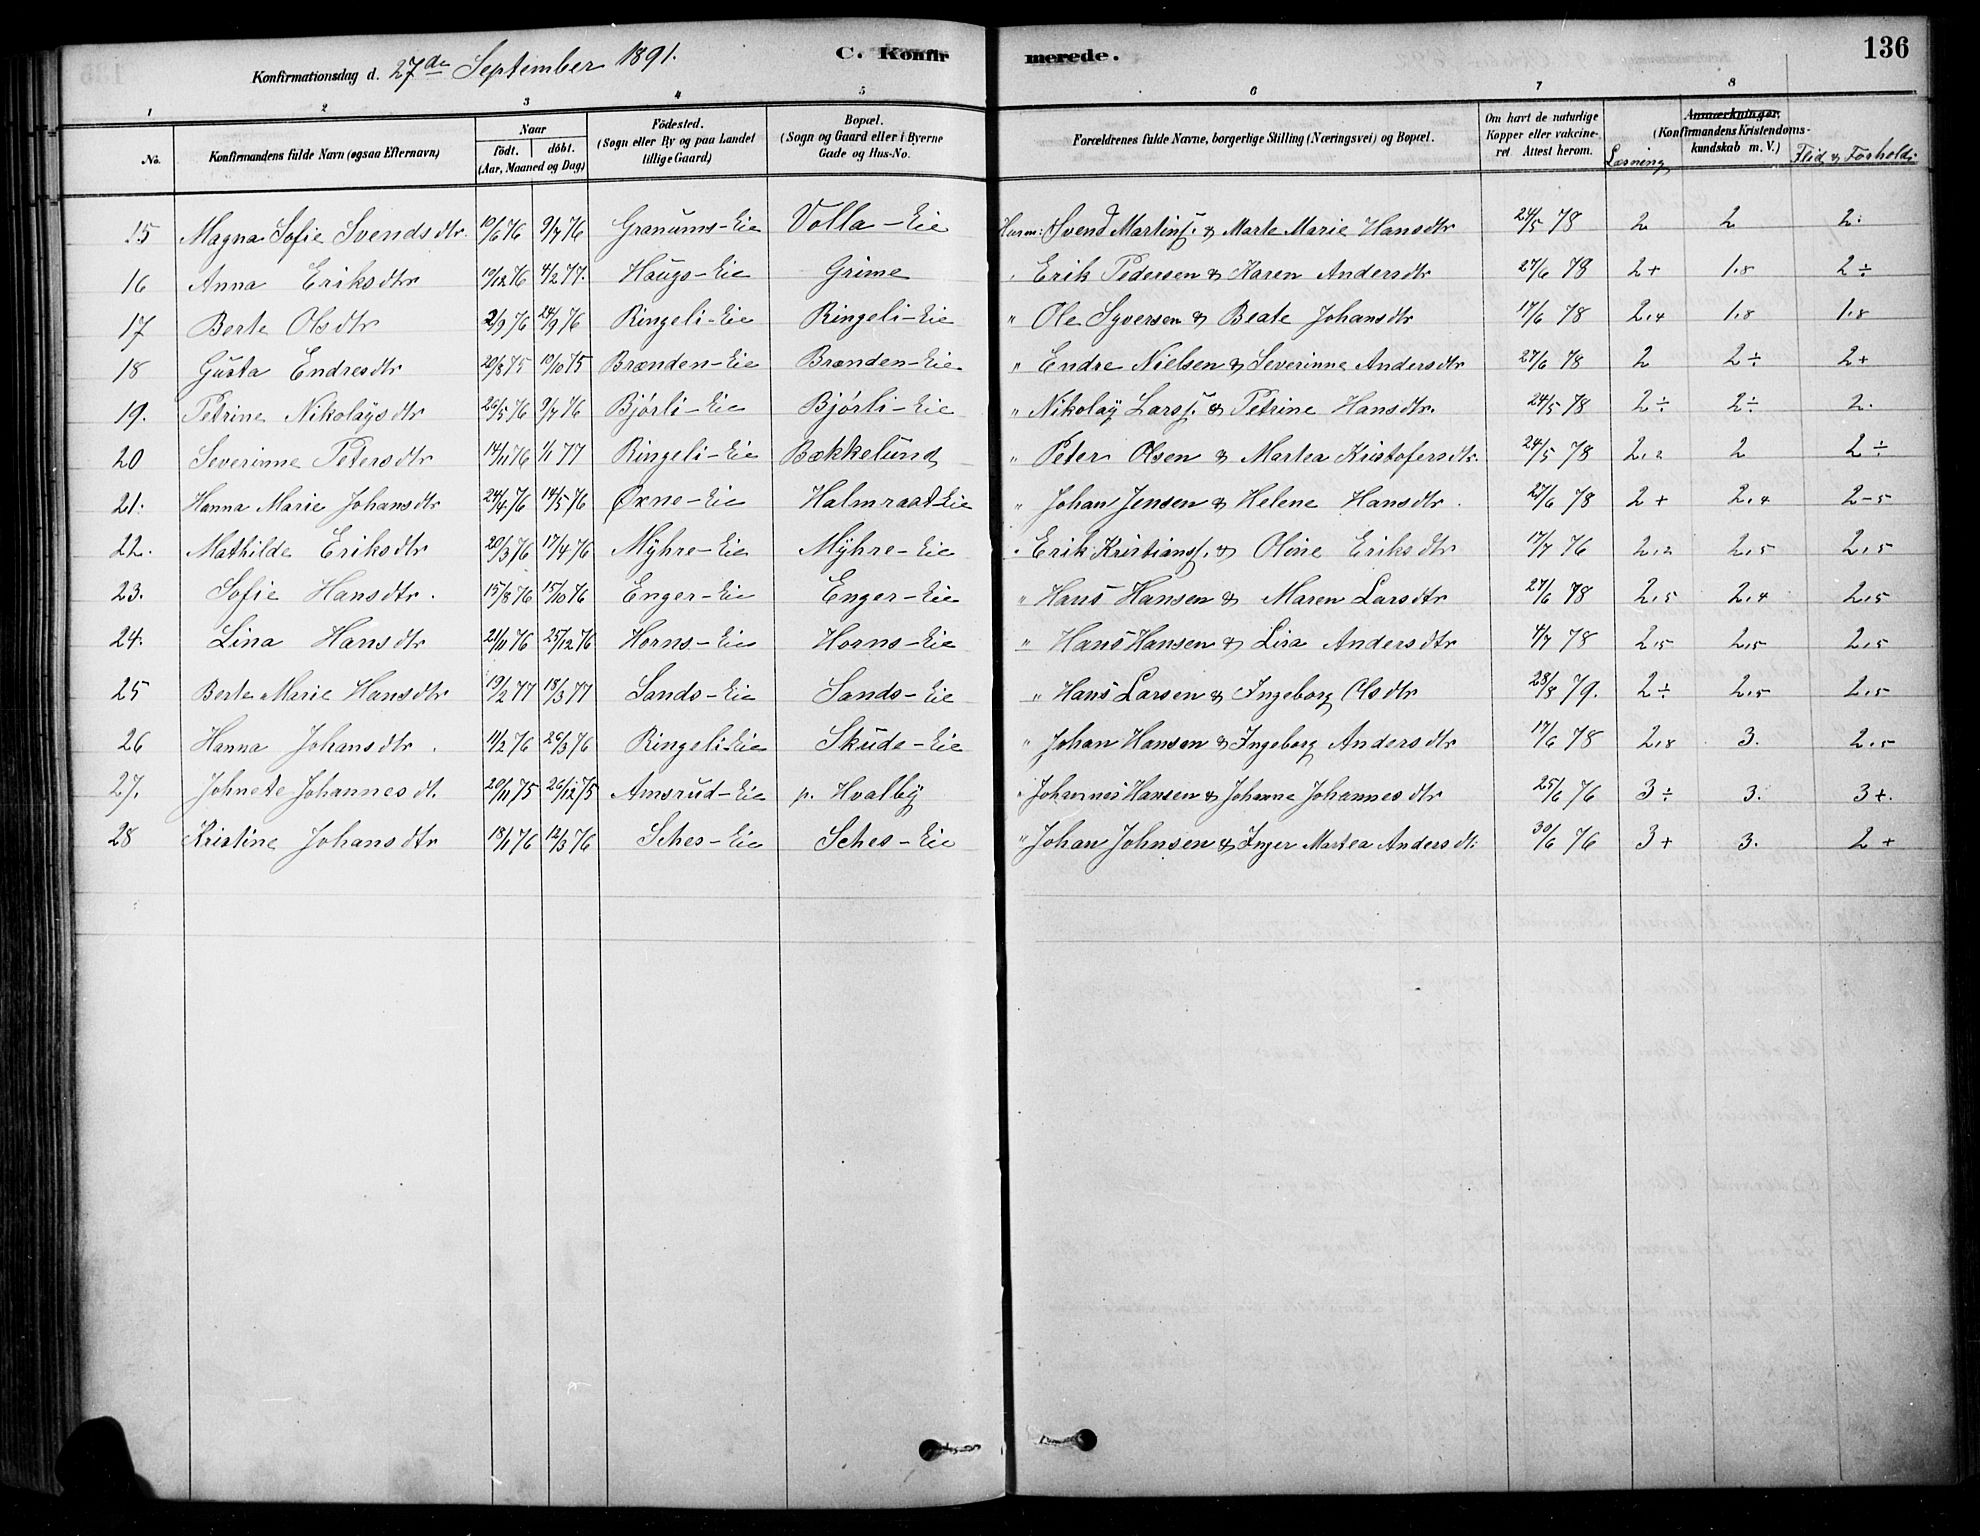 Konfirmationsdag d. 27de September 1891. C. Konfirmerede. 136
1 2 3 4 5 6 7 8
No. Konfirmandens fulde Navn (ogsaa Efternavn) Naar födt. döbt. (Aar, Maaned og Dag) Födested. (Sogn eller By og paa Landet tillige Gaard) Bopæl. (Sogn og Gaard eller i Byerne Gade og Hus-No. Forældrenes fulde Navne, borgerlige Stilling (Næringsvei) og Bopæl. Om havt de naturlige Kopper eller vakcineret Attest herom. Læsning Anmærkninger. (Konfirmandens Kristendomskundskab m. V.) Flid & Forhold:
15 Magna Sofie Svendsdtr. 10/6 76 9/7 76 Granums-Eie Volla-Eie Husm: Svend Martins. & Marte Marie Hansdtr 24/5 78 2 2 2.
16 Anna Eriksdtr 10/12 76 4/2 77. Haugs-Eie Grime " Erik Pedersen & Karen Andersdtr 27/6 78 2+ 1.8 2÷
17 Berte Olsdtr 2/9 76 24/9 76 Ringeli-Eie Ringeli-Eie " Ole Syversen & Beate Johansdtr 17/6 78 2,4 1.8 1.8
18 Gusta Endresdtr 20/8 75 10/10 75 Brænden-Eie Brænden-Eie. " Endre Nielsen & Severinne Andersdtr 27/6 78 2 2÷ 2+
19. Petrine Nikolaysdtr 26/5 76 9/7 76 Bjørli-Eie Bjørli-Eie " Nikolay Lars. & Petrine Hansdtr. 24/5 78 2÷ 2÷ 2.
20 Severinne Petersdtr 14/11 76 1/1 77 Ringeli-Eie Bækkelund " Peter Olsen & Martea Kristofersdtr. 24/5 78 2,2 2 2÷
21. Hanna Marie Johansdtr 24/4 76 14/5 76 Øxne-Eie Halmraast Eie " Johan Jensen & Helene Hansdtr. 27/6 78 2+ 2,4 2-5
22. Mathilde Eriksdtr 20/3 76 17/4 76 Myhre-Eie Myhre-Eie " Erik Kristians. & Oline Eriksdtr 17/7 76 2,2 2,5 2,5
23. Sofie Hansdtr. 15/8 76 15/10 76 Enger-Eie Enger-Eie " Hans Hansen & Maren Larsdtr 27/6 78 2,5 2,4 2,5
24. Lina Hansdtr 21/11 76 25/12 76 Horns-Eie Horns-Eie " Hans Hansen & Lisa Andersdtr 4/7 78 2,5 2,5 2,5
25 Berte Marie Hansdtr 19/2 77 18/3 77 Sands-Eie Sands-Eie " Hans Larsen & Ingeborg Olsdtr 28/8 79. 2÷ 2,5 2,5
26 Hanna Johansdtr. 11/2 76 26/3 76 Ringeli-Eie Skude-Eie " Johan Hansen & Ingeborg Andersdtr 17/6 78 2,8 3. 2,5
27. Johnete Johannesdt. 20/11 75 26/12 75 Amsrud-Eie p. Hvalby " Johannes Hansen & Johanne Johannesdtr 25/6 76 3÷ 3. 3+.
28 Kristine Johansdtr 18/1 76 12/3 76 Sehes-Eie Sehes-Eie " Johan Johnsen & Inger Martea Andersdt: 30/6 76 3+ 3. 2+